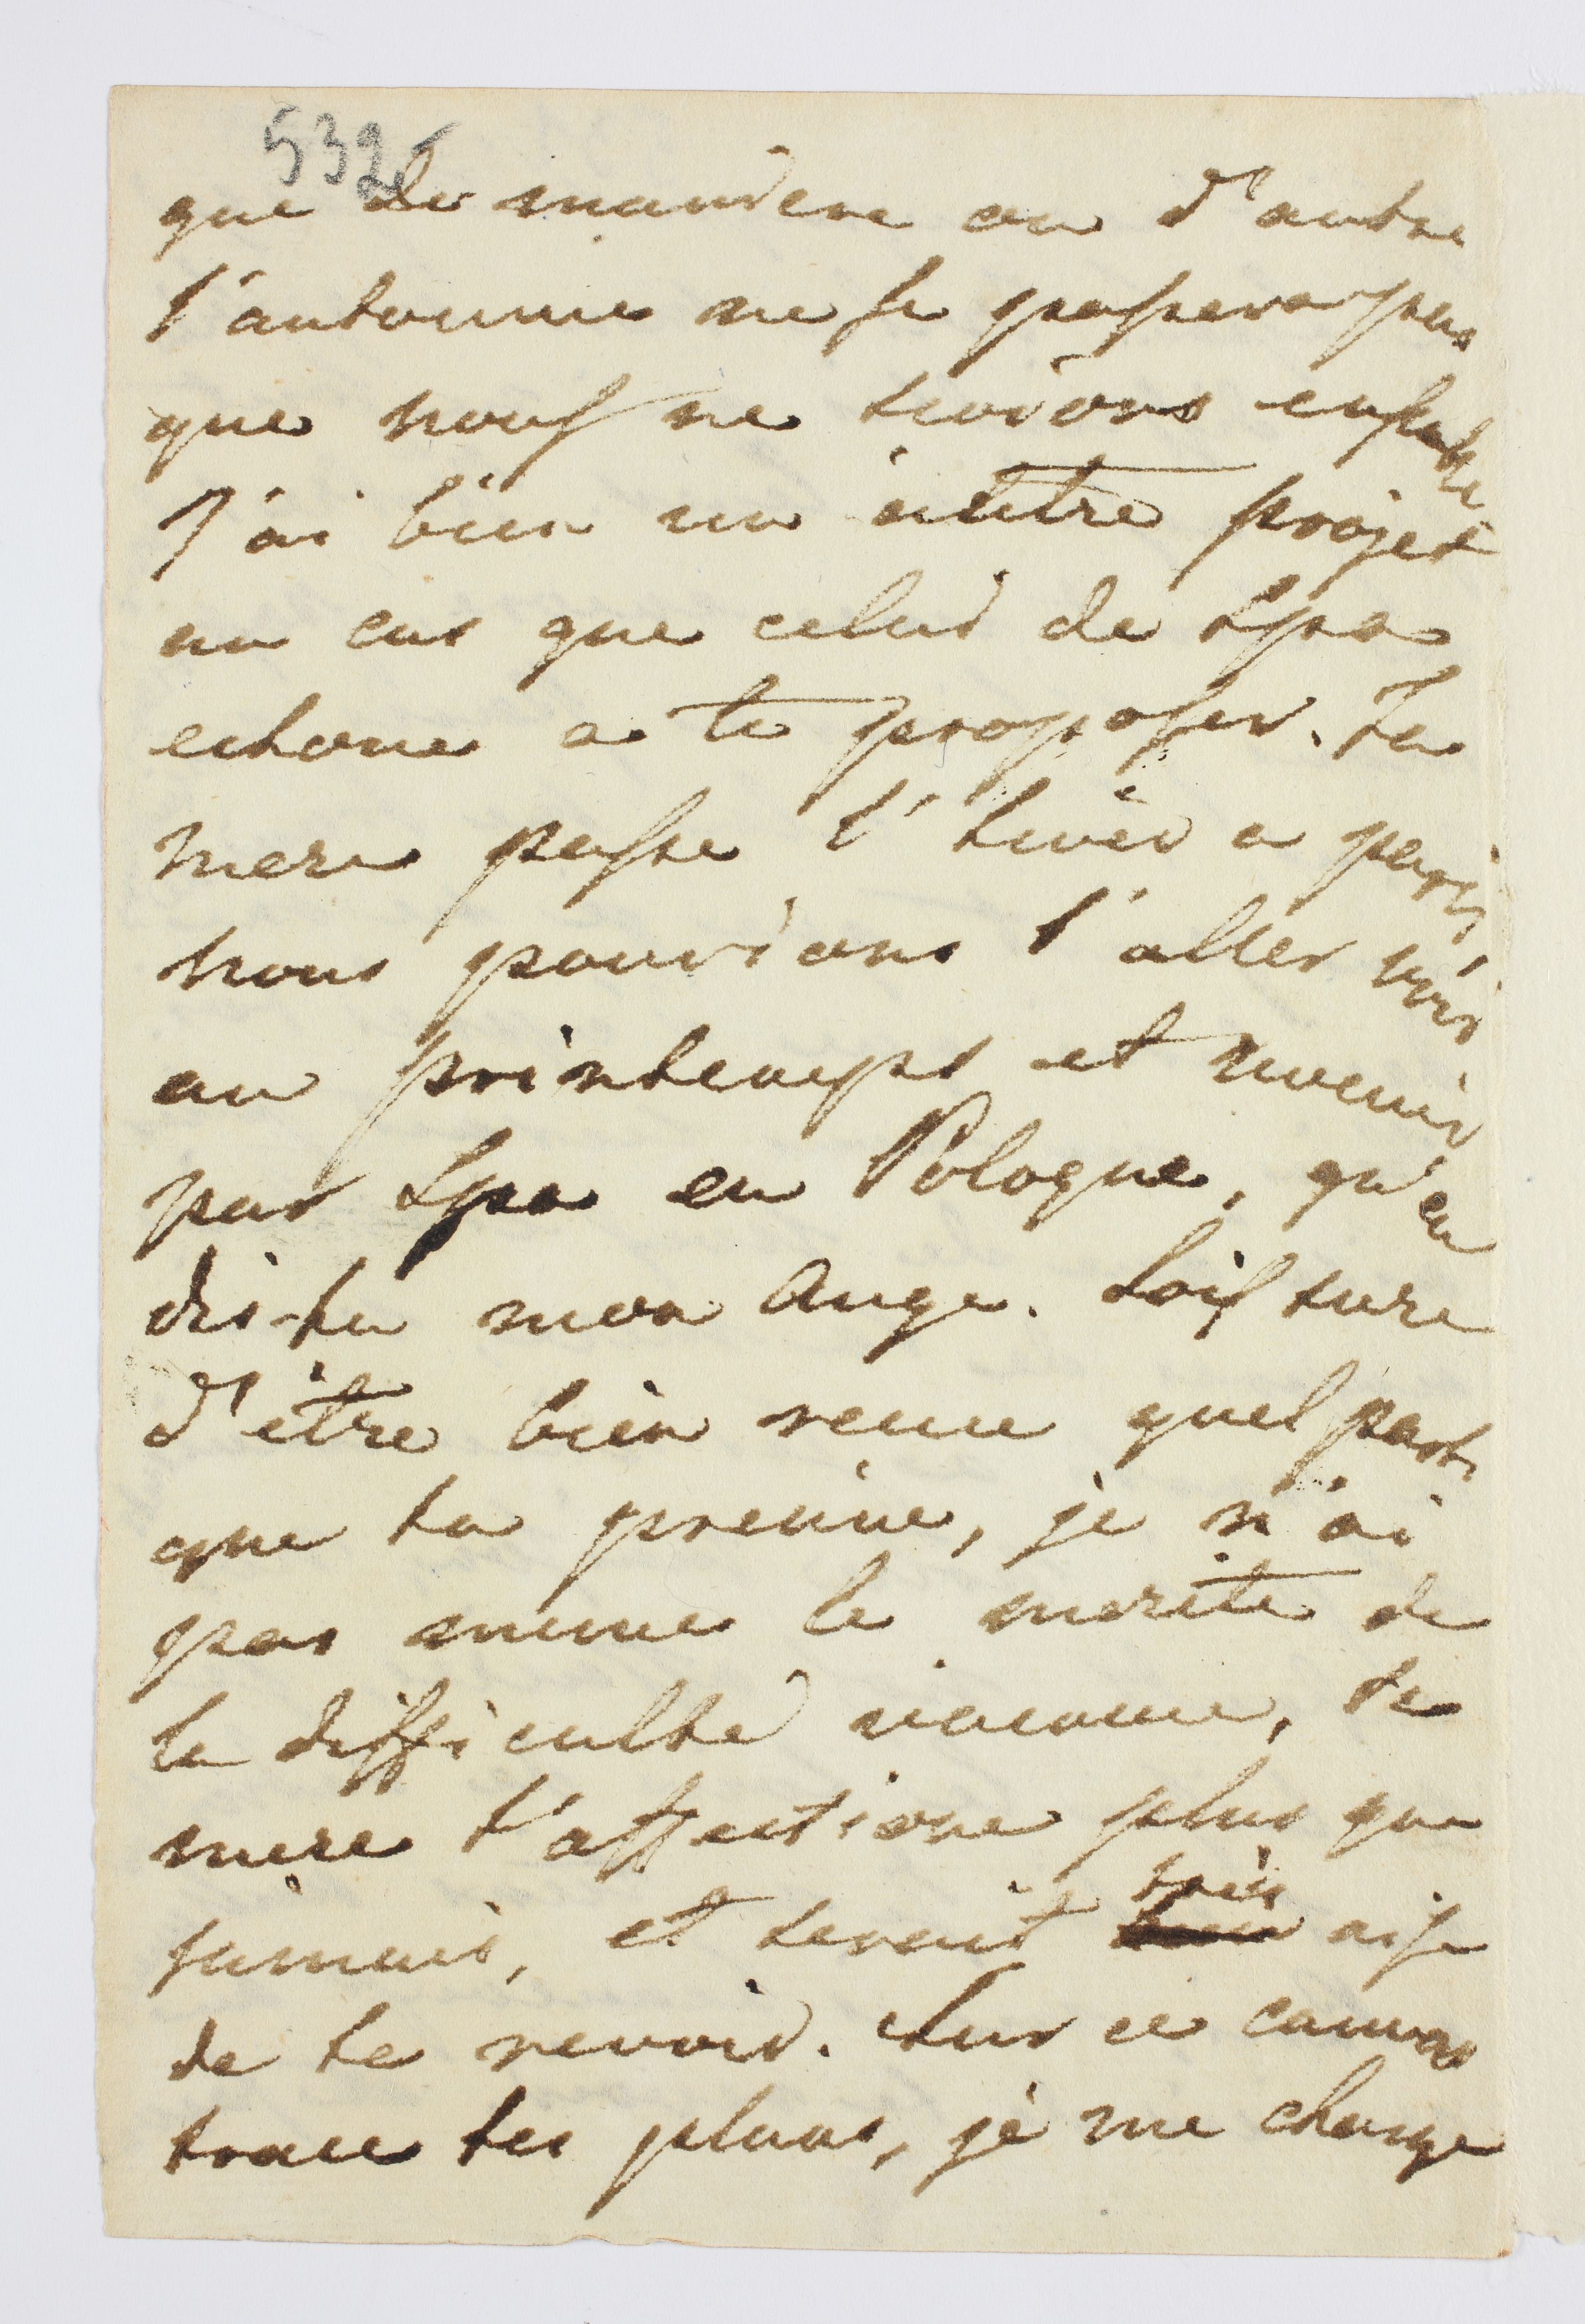 532
que de maniere ou d'autre
l'automne ne se passera pas
que nous ne soions ensemble
J'ai bien un autre projet
au cas que celui de Spa
echoue a te proposer. Ta
mere passe l'hiver a paris,
nous pourrions l'aller voir
au printemps et revenir
par Spa en Pologne, qu'en
dis-tu mon Ange. Sois sure
d'être bien venue quel parti
que tu prenne, je n'ai
pas meme le merite de
la difficulté vaincue, ta
mere t'affectione plus que
jamais, et serait très aise
de te revoir. Sur ce canvas
trace tes plans, je me charge